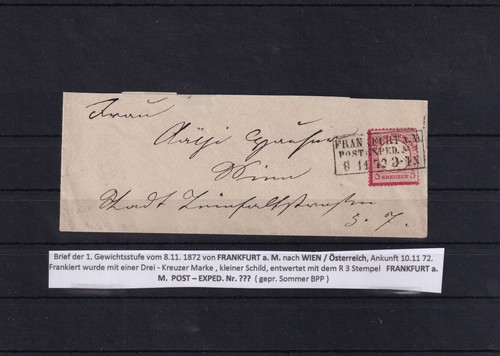 Frau
Wien
Stadt
3.7.
FRANKFURT A. M.
POST EXPED.
8 11 72 3-4 N
3 KREUZER 3
Brief der 1. Gewichtsstufe vom 8.11. 1872 von FRANKFURT a. M. nach WIEN / Österreich, Ankunft 10.11 72.
Frankiert wurde mit einer Drei - Kreuzer Marke , kleiner Schild, entwertet mit dem R 3 Stempel FRANKFURT a.
M. POST – EXPED. Nr. ??? ( gepr. Sommer BPP )